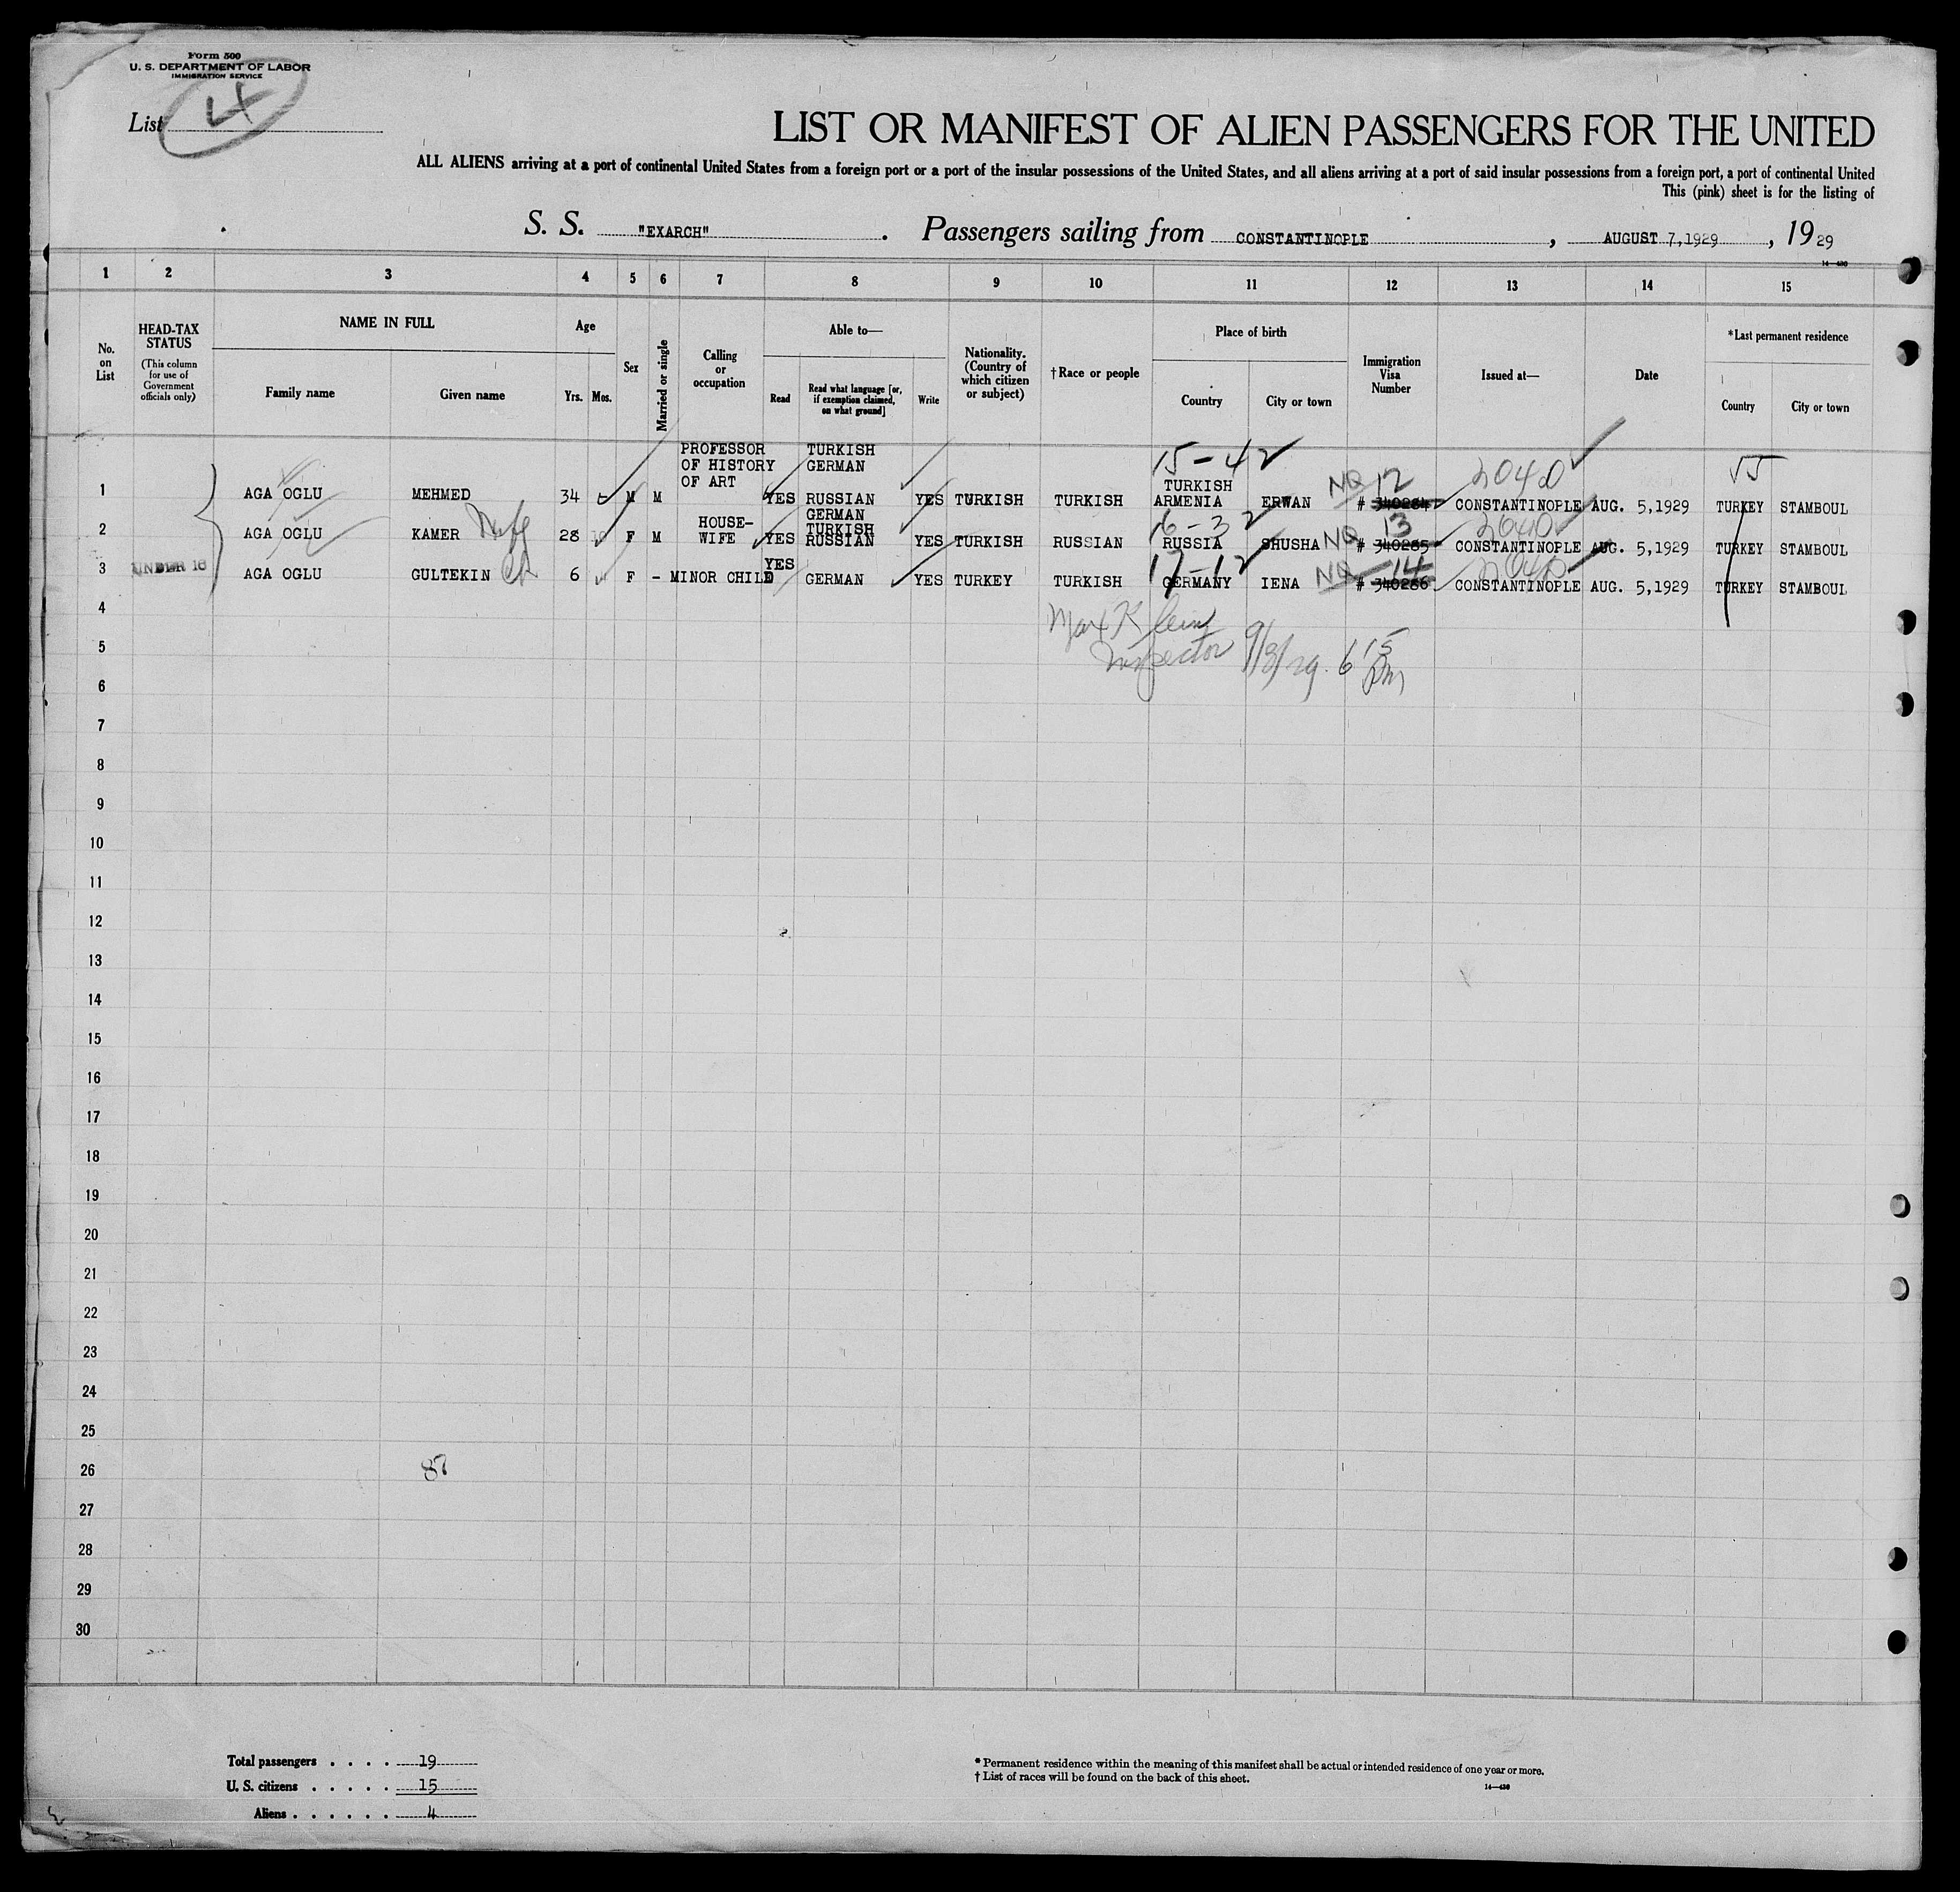 Form 500
U. S. DEPARTMENT OF LABOR
IMMIGRATION SERVICE
List 4
LIST OR MANIFEST OF ALIEN PASSENGERS FOR THE UNITED
ALL ALIENS arriving at a port of continental United States from a foreign port or a port of the insular possessions of the United States, and all aliens arriving at a port of said insular possessions from a foreign port, a port of continental United
This (pink) sheet is for the listing of
S. S. "EXARCH". Passengers sailing from CONSTANTINOPLE, AUGUST 7,1929, 1929
14—430
1 2 3 4 5 6 7 8 9 10 11 12 13 14 15
No. on List
HEAD-TAX STATUS
(This column for use of Government officials only)
NAME IN FULL
Family name Given name
Age
Yrs. Mos.
Sex
Married or single
Calling or occupation
Able to—
Read Read what language [or, if exemption claimed, on what ground] Write
Nationality. (Country of which citizen or subject)
†Race or people
Place of birth
Country City or town
Immigration Visa Number
Issued at—
Date
*Last permanent residence
Country City or town
PROFESSOR TURKISH 15-4
OF HISTORY GERMAN NQ 12 2040
OF ART TURKISH
1 AGA OGLU MEHMED 34 M M YES RUSSIAN YES TURKISH TURKISH ARMENIA ERWAN # 340284 CONSTANTINOPLE AUG. 5,1929 TURKEY STAMBOUL
HOUSE- GERMAN TURKISH 16-3 NQ 13 2040
2 AGA OGLU KAMER Wife 28 F M WIFE YES RUSSIAN YES TURKISH RUSSIAN RUSSIA SHUSHA # 340285 CONSTANTINOPLE AUG. 5,1929 TURKEY STAMBOUL
UNDER 16 YES 17-1 NQ 14 2040
3 AGA OGLU GULTEKIN Ch 6 F - MINOR CHILD GERMAN YES TURKEY TURKISH GERMANY IENA # 340286 CONSTANTINOPLE AUG. 5,1929 TURKEY STAMBOUL
4
Max Klein
5
Inspector 9/3/29. 6 15 pm
6
7
8
9
10
11
12
13
14
15
16
17
18
19
20
21
22
23
24
25
26 87
27
28
29
30
Total passengers . . . . 19
U. S. citizens . . . . . 15
Aliens . . . . . . 4
* Permanent residence within the meaning of this manifest shall be actual or intended residence of one year or more.
† List of races will be found on the back of this sheet.
14—430